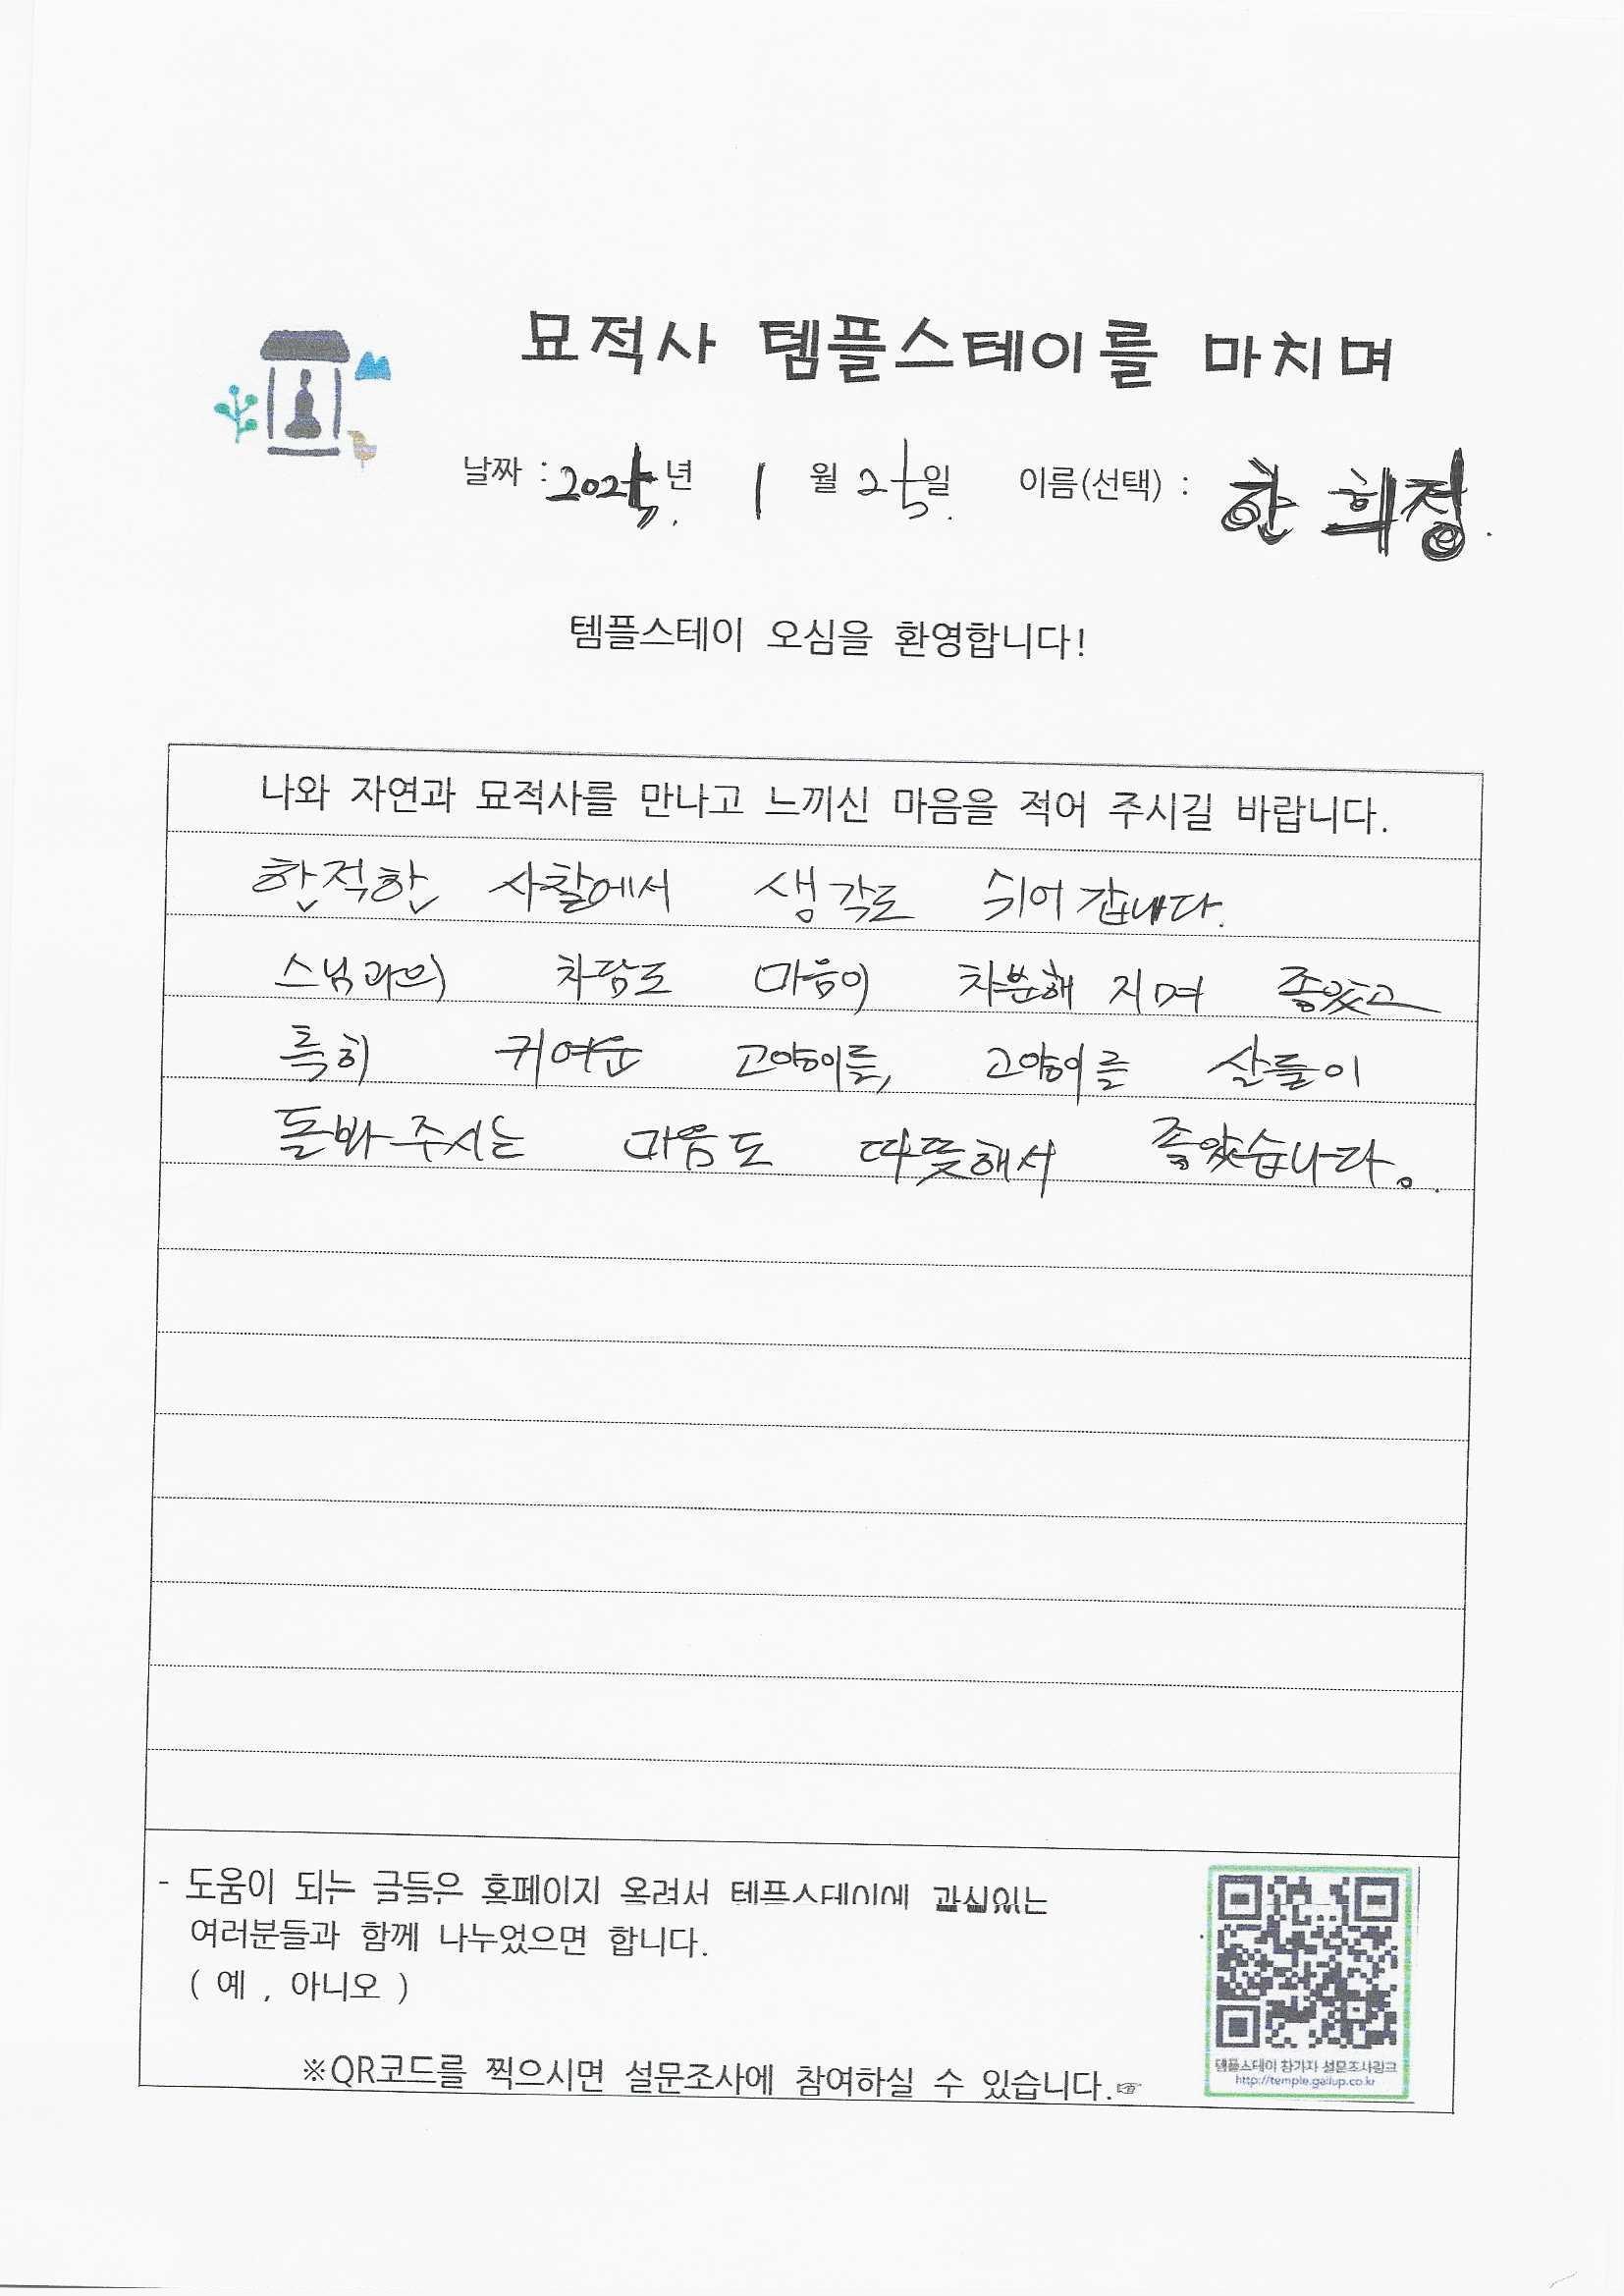 묘적사 템플스테이를 마치며
날짜 : 2025년 1월 25일 이름(선택) : 한희정.
템플스테이 오심을 환영합니다!
나와 자연과 묘적사를 만나고 느끼신 마음을 적어 주시길 바랍니다.
한적한 사찰에서 생각도 쉬어 갑니다.
스님과의 차담도 마음이 차분해 지며 좋았고
특히 귀여운 고양이들, 고양이를 살뜰이
돌봐주시는 마음도 따뜻해서 좋았습니다.
- 도움이 되는 글들은 홈페이지 올려서 템플스테이에 관심있는
여러분들과 함께 나누었으면 합니다.
( 예 , 아니오 )
※QR코드를 찍으시면 설문조사에 참여하실 수 있습니다.☞
템플스테이 참가자 설문조사링크
http://temple.gallup.co.kr